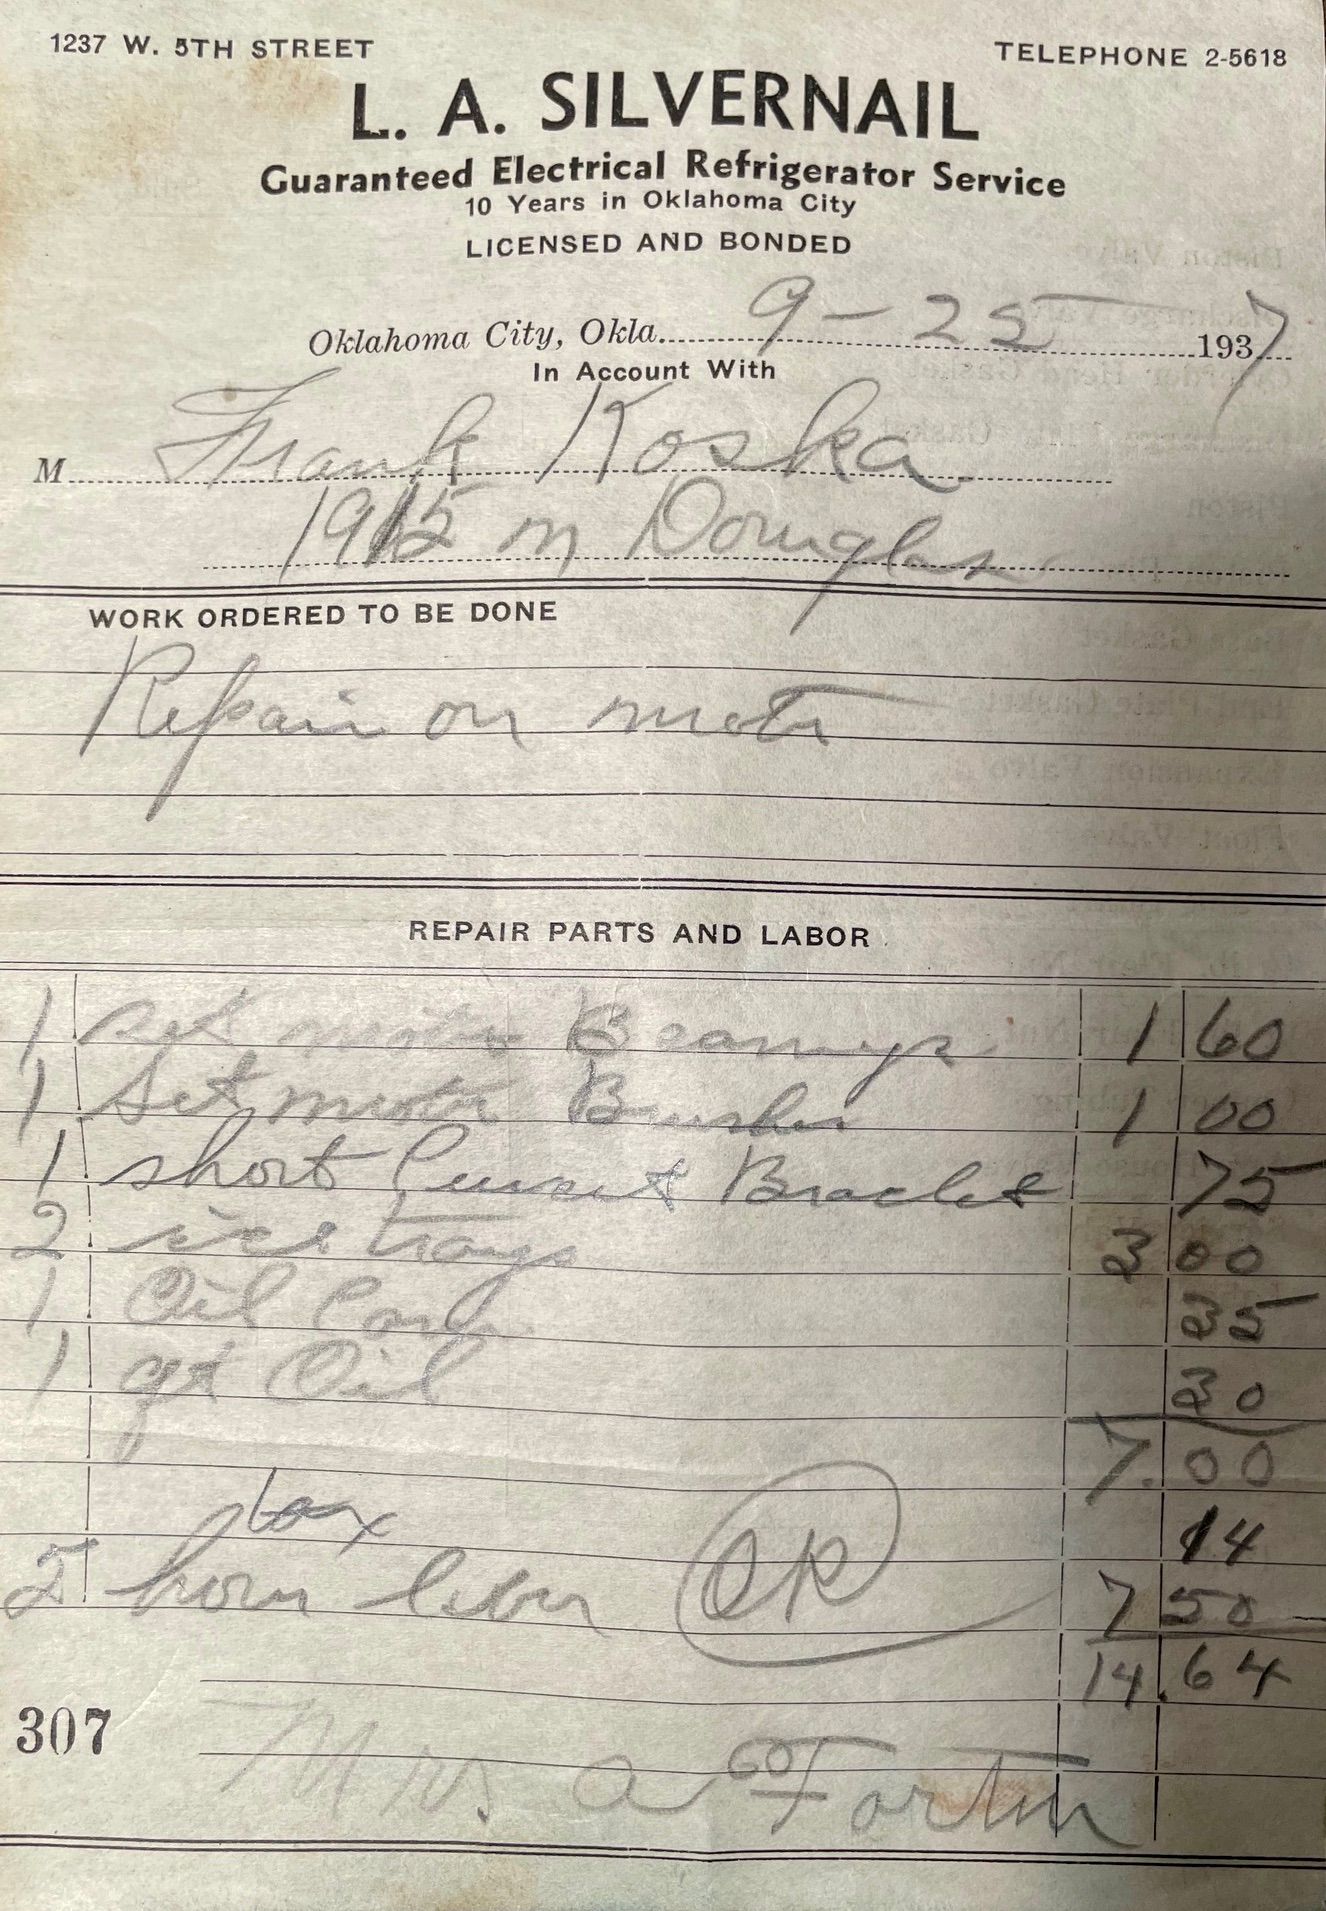 1237 W. 5TH STREET
TELEPHONE 2-5618
L. A. SILVERNAIL
Guaranteed Electrical Refrigerator Service
10 Years in Oklahoma City
LICENSED AND BONDED
Oklahoma City, Okla. 9-25 1937
In Account With
M Frank Koska
1915 n Douglas
WORK ORDERED TO BE DONE
Repair on motor
REPAIR PARTS AND LABOR
1 set motor Bearings 1 60
1 set motor Brushes 1 00
1 short Bracket 75
2 ice trays 3 00
1 Oil 35
1 qt Oil 30
7.00
tax 14
5 hour labor OK 7 50
14.64
307
Mrs a